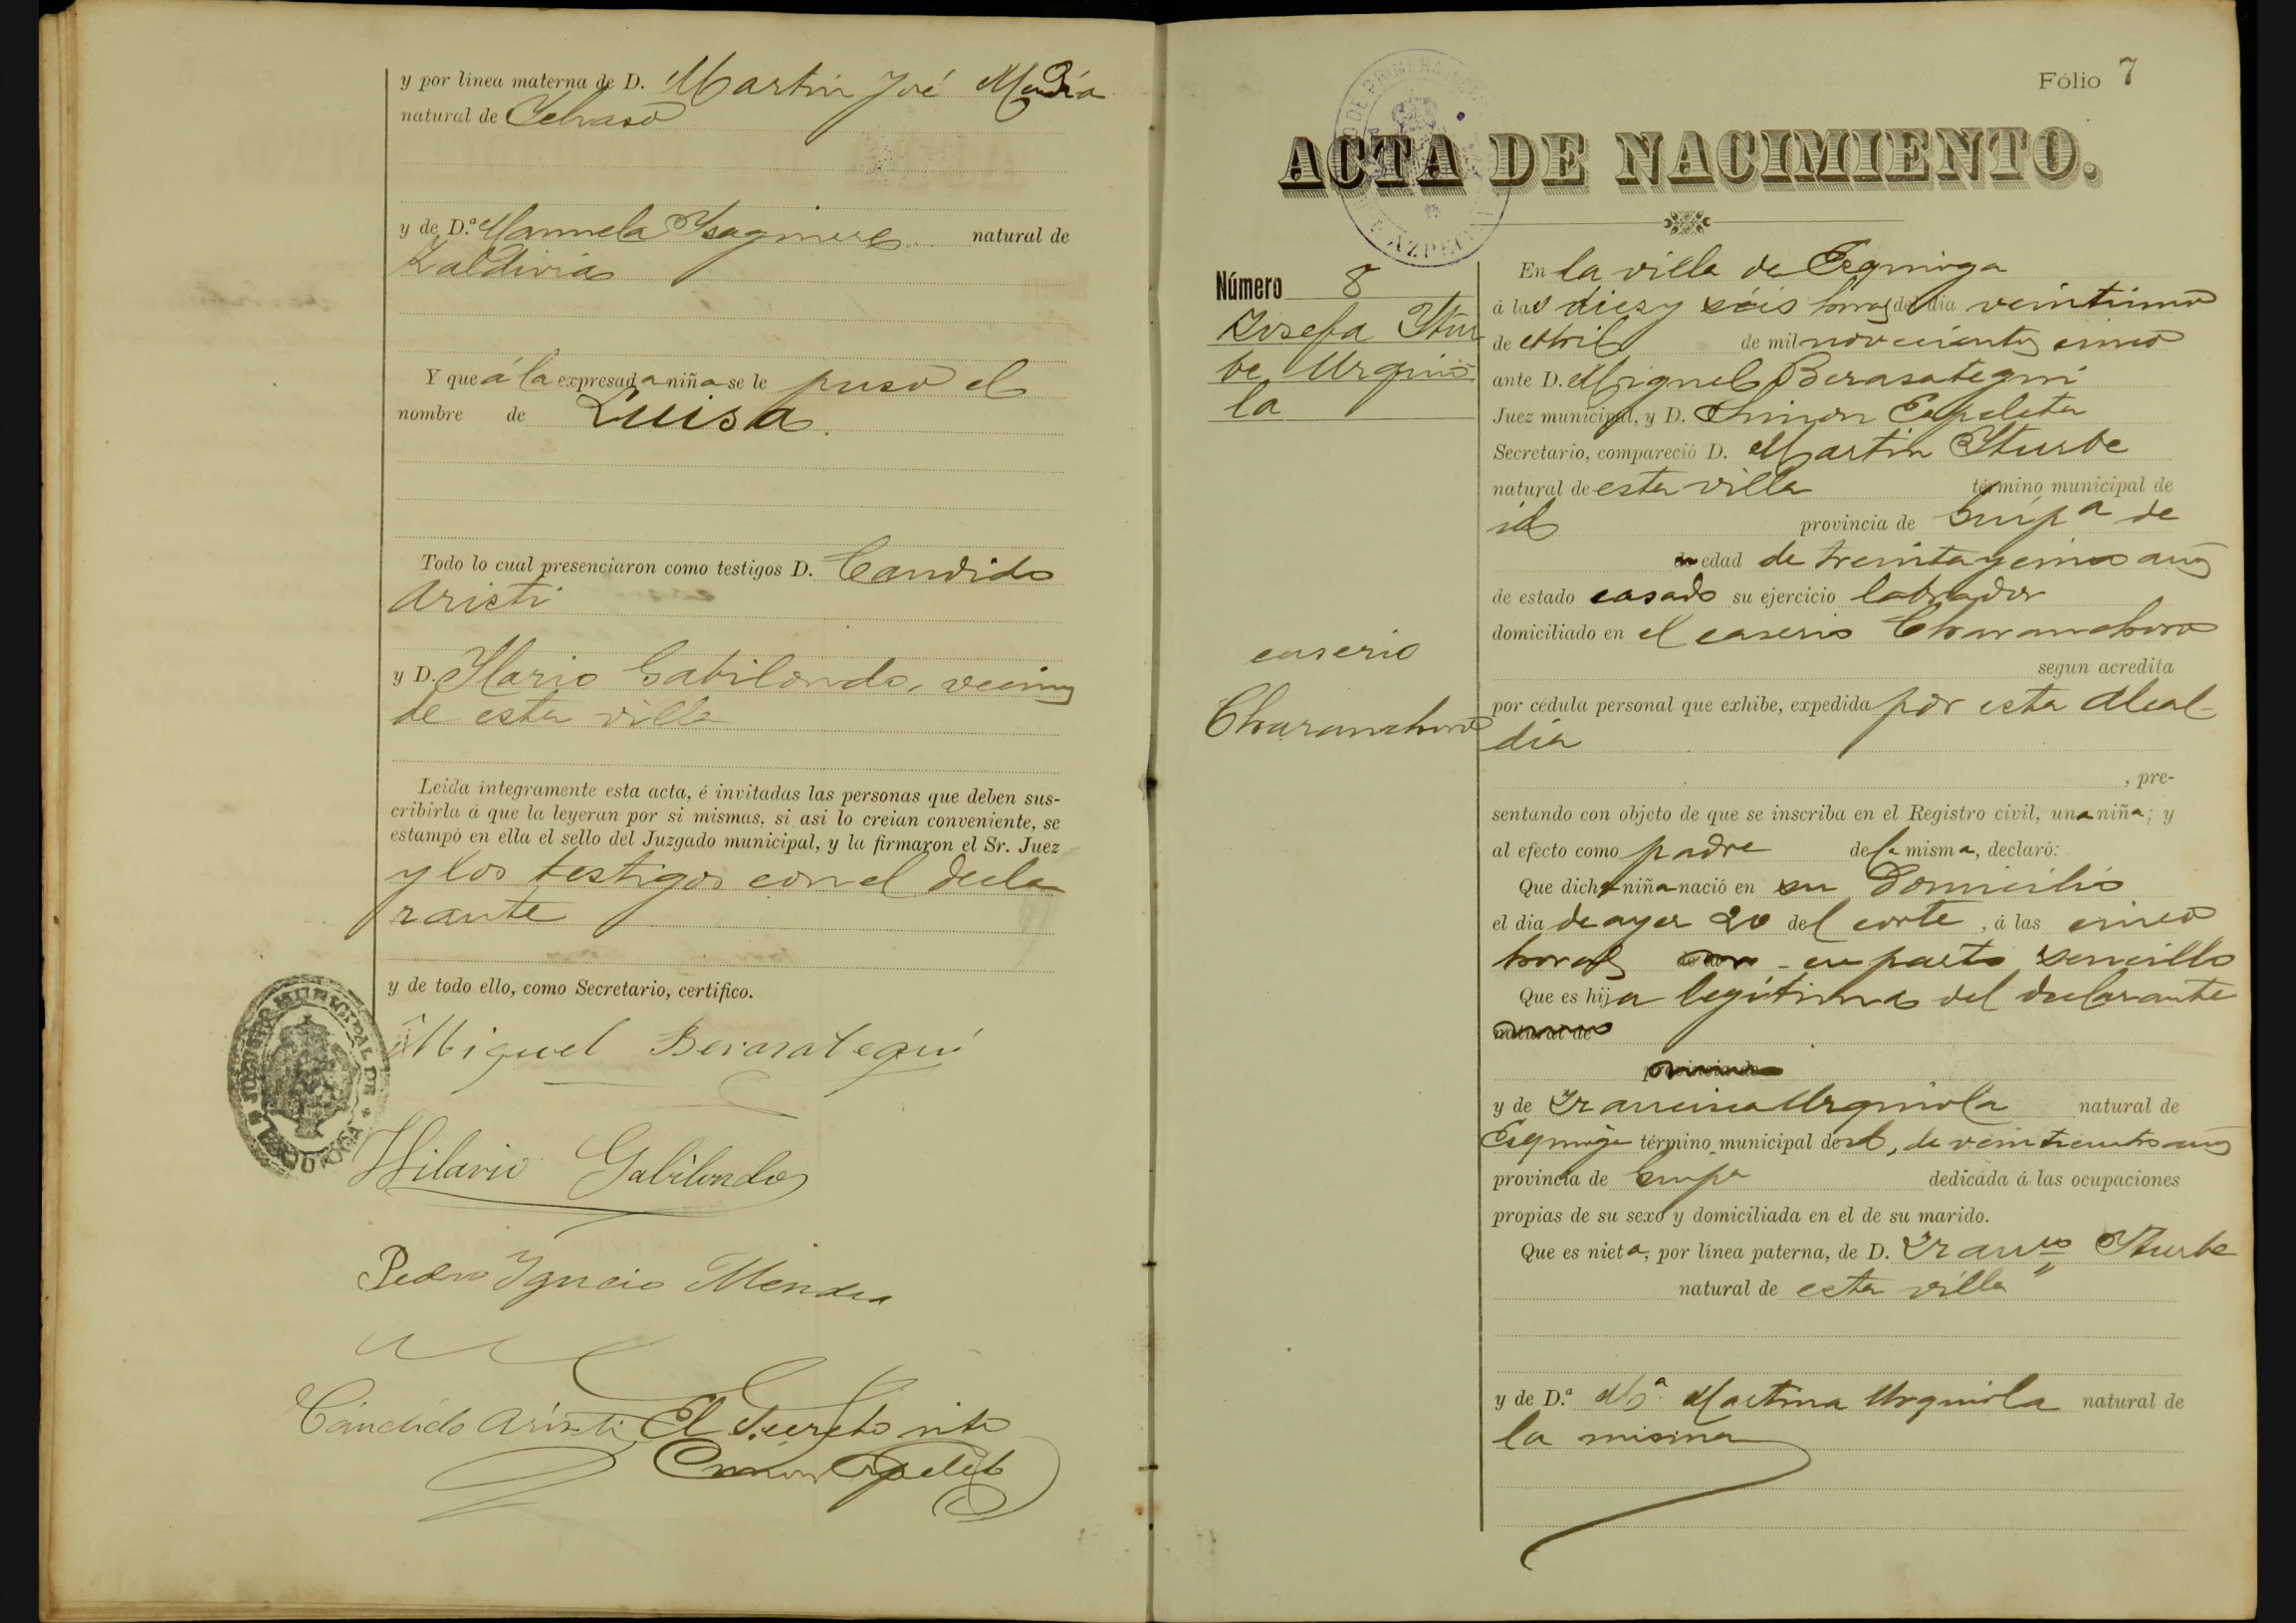 y por línea materna de D. Martin José Mendia
natural de
y de D.ª Manuela Ysaguirre natural de
Zaldivia
Y que á la expresada niña se le puso el
nombre de Luisa.
Todo lo cual presenciaron como testigos D. Candido
Aristi
y D. Ylario Gabilondo, vecinos
de esta villa
Leida íntegramente esta acta, é invitadas las personas que deben sus-
cribirla á que la leyeran por si mismas, si asi lo creian conveniente, se
estampó en ella el sello del Juzgado municipal, y la firmaron el Sr. Juez
y los testigos con el decla
rante
y de todo ello, como Secretario, certifico.
JUZGADO MUNICIPAL DE EZQUIOGA
Miguel Berasategui
Hilario Gabilondo
Pedro Ygnacio Mendia
Cándido Aristi El Secreto into
Simon Ezpeleta
Fólio 7
ACTA DE NACIMIENTO.
Número 8
Josefa Ytur
be Urquio
la
caserio
Charanchoro
En la villa de Ezquioga
á las diez y séis horas del dia veintiuno
de Abril de mil novecientos cinco
ante D. Miguel Berasategui
Juez municipal, y D. Simon Ezpeleta
Secretario, compareció D. Martin Yturbe
natural de esta villa término municipal de
id provincia de Guipª de
edad de treinta y cinco años
de estado casado su ejercicio labrador
domiciliado en el caserio Charanchoro
segun acredita
por cédula personal que exhibe, expedida por esta Alcal-
dia
, pre-
sentando con objeto de que se inscriba en el Registro civil, una niña; y
al efecto como padre de la misma, declaró:
Que dicha niña nació en su domicilio
el dia de ayer 20 del corte, á las cinco
horas en parto sencillo
Que es hija legítima del declarante
natural de
y de Francisca Urquiola natural de
Ezquioga término municipal de id, de veinticuatro años
provincia de Guipª dedicada á las ocupaciones
propias de su sexo y domiciliada en el de su marido.
Que es nieta, por línea paterna, de D. Franco Yturbe
natural de esta villa
y de D.ª Mª Martina Urquiola natural de
la misma